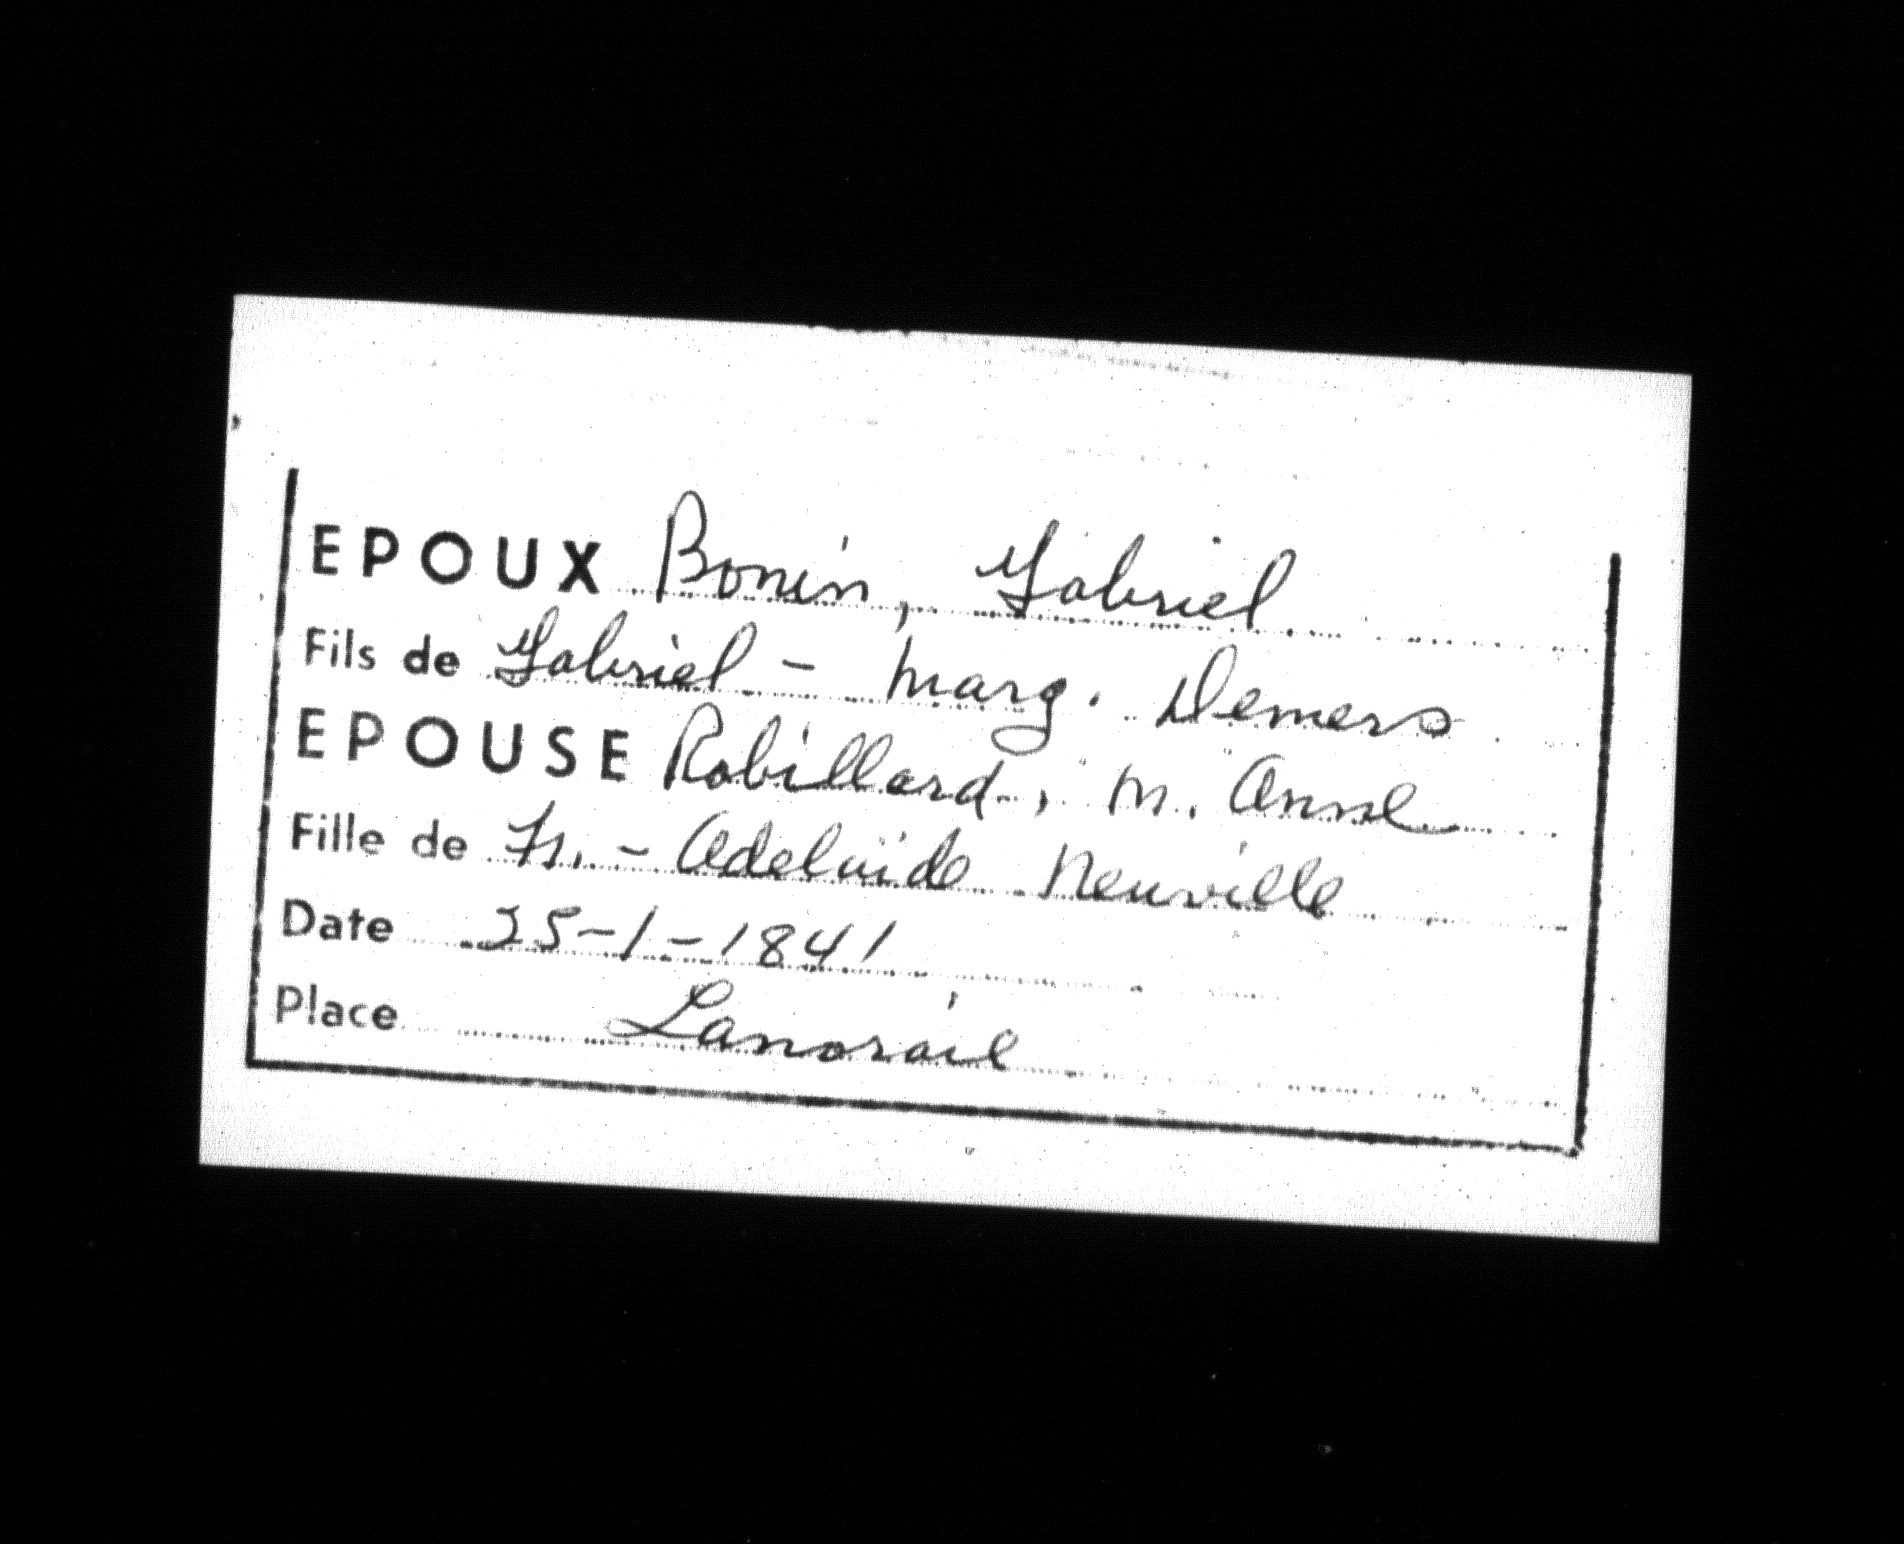 EPOUX Bonin, Gabriel
Fils de Gabriel - Marg. Demers
EPOUSE Robillard, M. Anne
Fille de Fr. - Adelaïde Neuville
Date 25-1-1841
Place Lanoraie